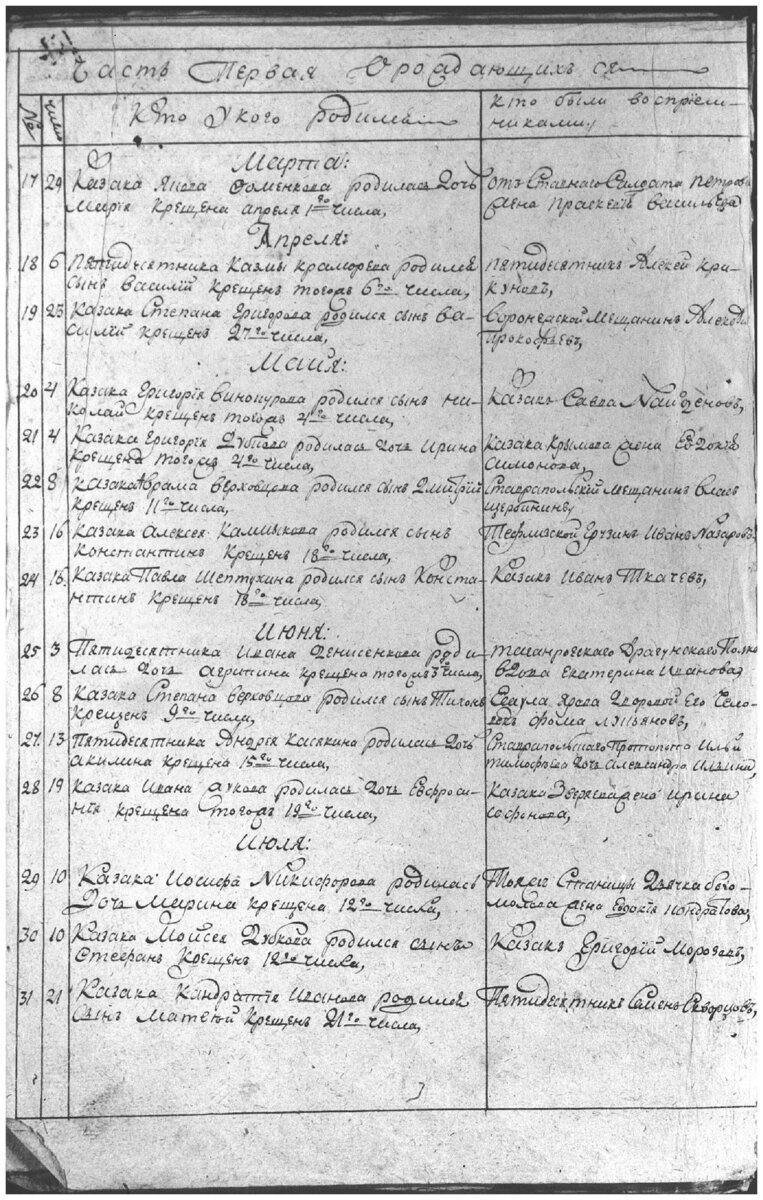 Часть Первая О рождающихся
№
число
кто у кого родился
кто были восприем-
никами,
Марта:
17 29 Казака Якова Фоменкова родилась дочь
Мария крещена апреля 1го числа,
отъ Ставнаго Салдата Петрова
жена Праскевия Васильева
Апреля
18 6 пятидесятника Казмы Краморева родился
сынъ Василий крещенъ тогожъ 6го числа,
пятидесятникъ Алексей Кри-
куновъ,
19 23 Казака Степана Григорова родился сынъ Ва-
силий крещенъ 27го числа,
Воронежской Мещанинъ Александръ
Прокофьевъ,
Майя:
20 4 Казака Григория Винокурова родился сынъ Ни-
колай крещенъ тогожъ 4го числа,
Казакъ Савва Найденовъ,
21 4 Казака Григория Дубова родилась дочь Ирина
крещена тогожъ 4го числа,
Казака Крымова жена Евдокия
Симонова,
22 8 Казака Абрама Верховцова родился сынъ Дмитрий
крещенъ 11го числа,
Ставрапольский Мещанинъ Власъ
Щербининъ,
23 16 Казака Алексея Камыкова родился сынъ
Константинъ крещенъ 18го числа,
Тефлизской Грузинъ Иванъ Назаровъ
24 16 Казака Павла Шептухина родился сынъ Конста-
нтинъ крещенъ 18го числа,
Казакъ Иванъ Ткачевъ,
Июня:
25 3 Пятидесятника Ивана Денисенкова роди-
лась дочь Агрипина крещена тогожъ 3 числа,
таганровскаго драгунскаго Полку
вдова Екатерина Иванова
26 8 Казака Степана Верховцова родился сынъ Тихонъ
крещенъ 9го числа,
Есаула Ярова дворовой Его чело-
векъ Фома Лукьяновъ,
27 13 Пятидесятника Андрея Касякина родилась дочь
Акилина крещена 15го числа,
Ставрапольскаго Протопопа Ильи
Тимофеева дочь Александра Ильина,
28 19 Казака Ивана Жукова родилась дочь Евфроси-
ния крещена тогожъ 19го числа,
Казака Зверева жена Ирина
Софонова,
Июля:
29 10 Казака Иосифа Никифорова родилась
дочь Марина крещена 12го числа,
Тояжъ Станицы Дьячка Бого-
молова жена Евдокия Кондратова,
30 10 Казака Мойсея Дубкова родился сынъ
Стефанъ крещенъ 12го числа,
Казакъ Григорий Морозовъ,
31 21 Казака Кандратия Иванова родился
сынъ Матвей крещенъ 21го числа,
Пятидесятникъ Семенъ Скворцовъ,